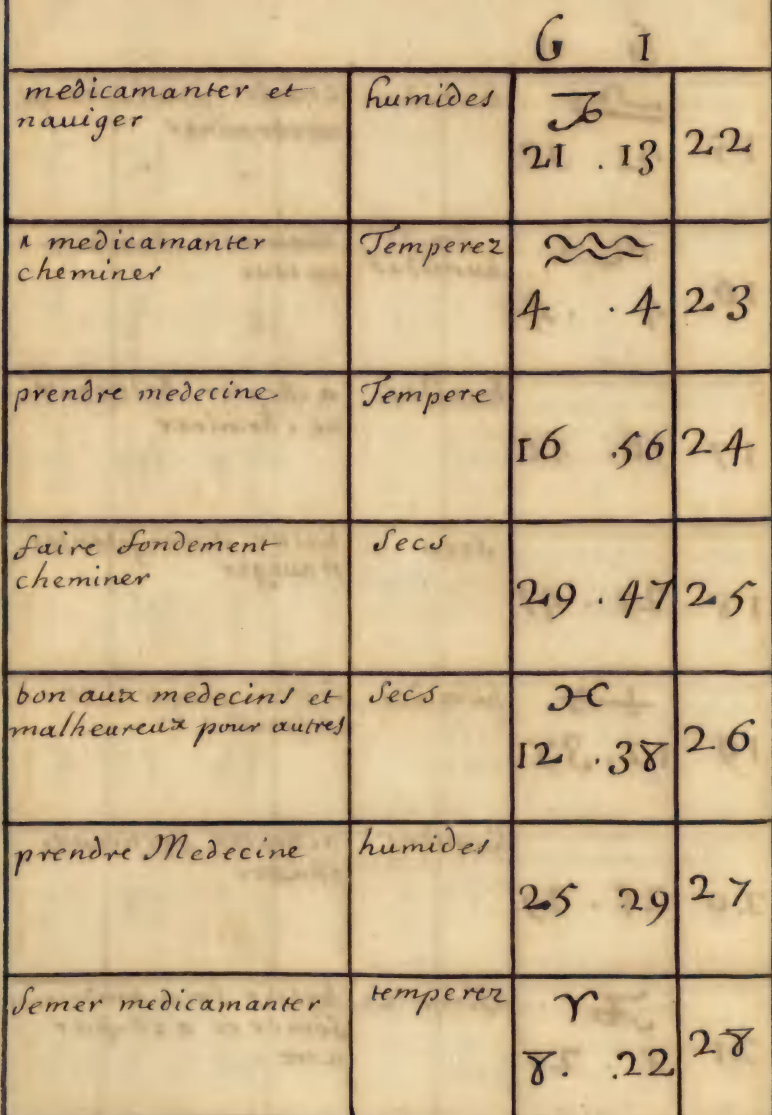 G I
medicamanter et
nauiger
humides
♑
21 . 13
22
a medicamanter
cheminer
Temperez
♒
4 . 4
23
prendre medecine
Tempere
16 .56
24
faire fondement
cheminer
Secs
29 . 47
25
bon aux medecins et
malheureux pour autres
Secs
♓
12 .38
26
prendre Medecine
humides
25 . 29
27
Semer medicamanter
temperez
♈
8. .22
28